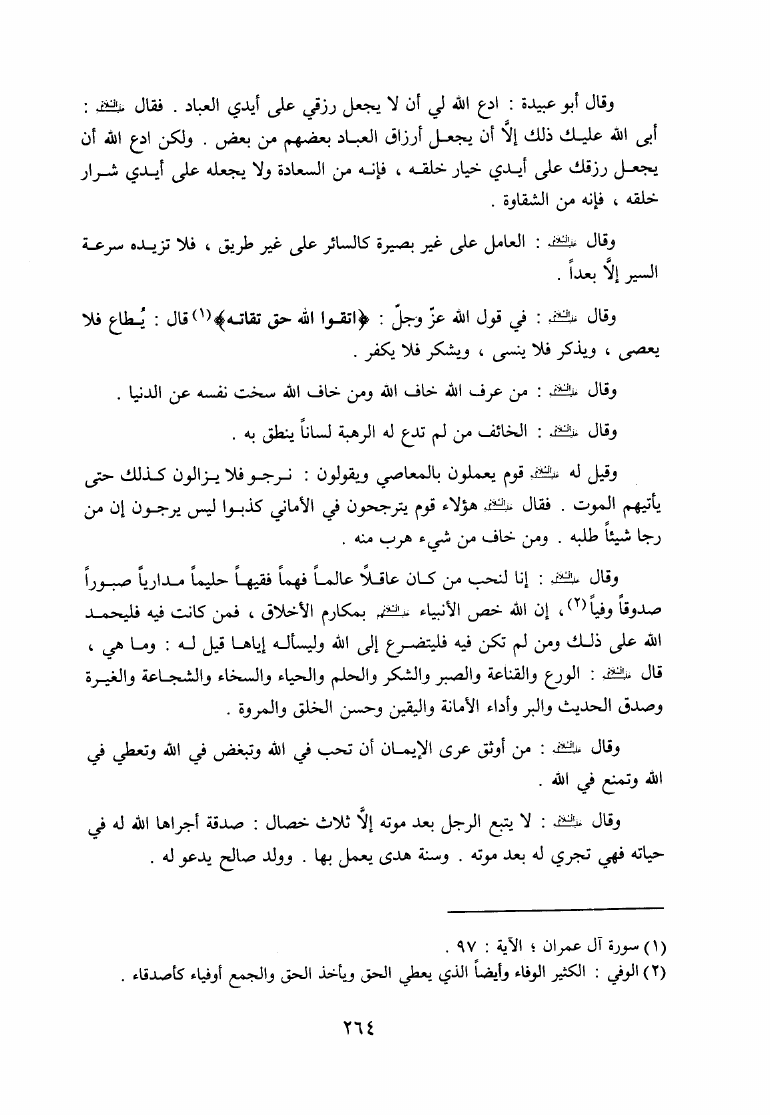 وقال أبو عبيدة : ادع الله لي أن لا يجعل رزقي على أيدي العباد . فقال عليه السلام :
أبى الله عليك ذلك إلاَّ أن يجعل أرزاق العباد بعضهم من بعض . ولكن ادع الله أن
يجعل رزقك على أيدي خيار خلقه ، فإنه من السعادة ولا يجعله على أيدي شرار
خلقه ، فإنه من الشقاوة .
وقال عليه السلام : العامل على غير بصيرة كالسائر على غير طريق ، فلا تزيده سرعة
السير إلاَّ بعداً .
وقال عليه السلام : في قول الله عزّ وجلّ : ﴿اتقوا الله حق تقاته﴾(١) قال : يُطاع فلا
يعصى ، ويذكر فلا ينسى ، ويشكر فلا يكفر .
وقال عليه السلام : من عرف الله خاف الله ومن خاف الله سخت نفسه عن الدنيا .
وقال عليه السلام : الخائف من لم تدع له الرهبة لساناً ينطق به .
وقيل له عليه السلام قوم يعملون بالمعاصي ويقولون : نرجو فلا يزالون كذلك حتى
يأتيهم الموت . فقال عليه السلام هؤلاء قوم يترجحون في الأماني كذبوا ليس يرجون إن من
رجا شيئاً طلبه . ومن خاف من شيء هرب منه .
وقال عليه السلام : إنا لنحب من كان عاقلاً عالماً فهماً فقيهاً حليماً مدارياً صبوراً
صدوقاً وفياً(٢) ، إن الله خص الأنبياء عليهم السلام بمكارم الأخلاق ، فمن كانت فيه فليحمد
الله على ذلك ومن لم تكن فيه فليتضرع إلى الله وليسأله إياها قيل له : وما هي ،
قال عليه السلام : الورع والقناعة والصبر والشكر والحلم والحياء والسخاء والشجاعة والغيرة
وصدق الحديث والبر وأداء الأمانة واليقين وحسن الخلق والمروة .
وقال عليه السلام : من أوثق عرى الإيمان أن تحب في الله وتبغض في الله وتعطي في
الله وتمنع في الله .
وقال عليه السلام : لا يتبع الرجل بعد موته إلاَّ ثلاث خصال : صدقة أجراها الله له في
حياته فهي تجري له بعد موته . وسنة هدى يعمل بها . وولد صالح يدعو له .
(١) سورة آل عمران ؛ الآية : ٩٧ .
(٢) الوفي : الكثير الوفاء وأيضاً الذي يعطي الحق ويأخذ الحق والجمع أوفياء كأصدقاء .
٢٦٤